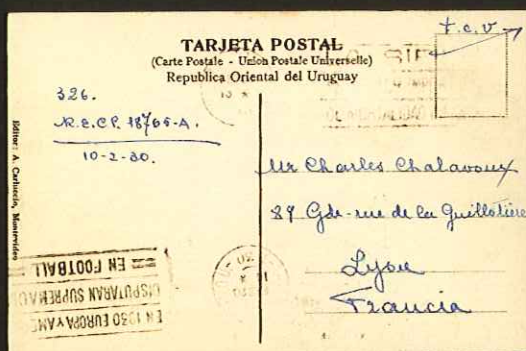 t.c.v
TARJETA POSTAL
(Carte Postale - Union Postale Universelle)
Republica Oriental del Uruguay
326.
10-2-30.
Mr Charles Chalavoux
89 Gde-rue de la Guillotière
Lyon
Francia
Editor: A. Carluccio, Montevideo
EN 1930 EUROPA Y AME
DISPUTARAN SUPREMAC
EN FOOTBALL